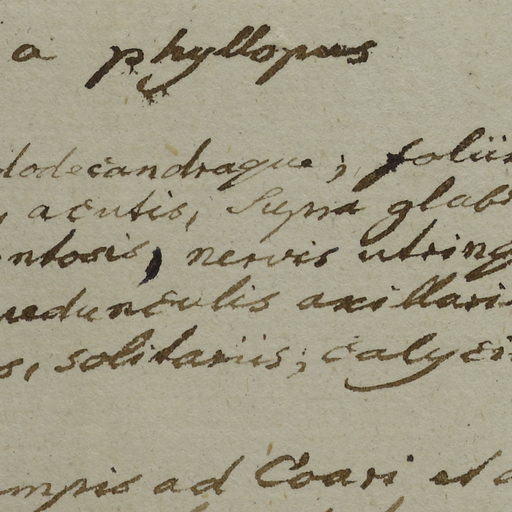 a phyllopus
dodecandraque; foliis
, acutis, supra glabr
ntosis, nervis utrinq
pedunculis axillaris
s, solitariis; calyci
ampis ad Coari et a